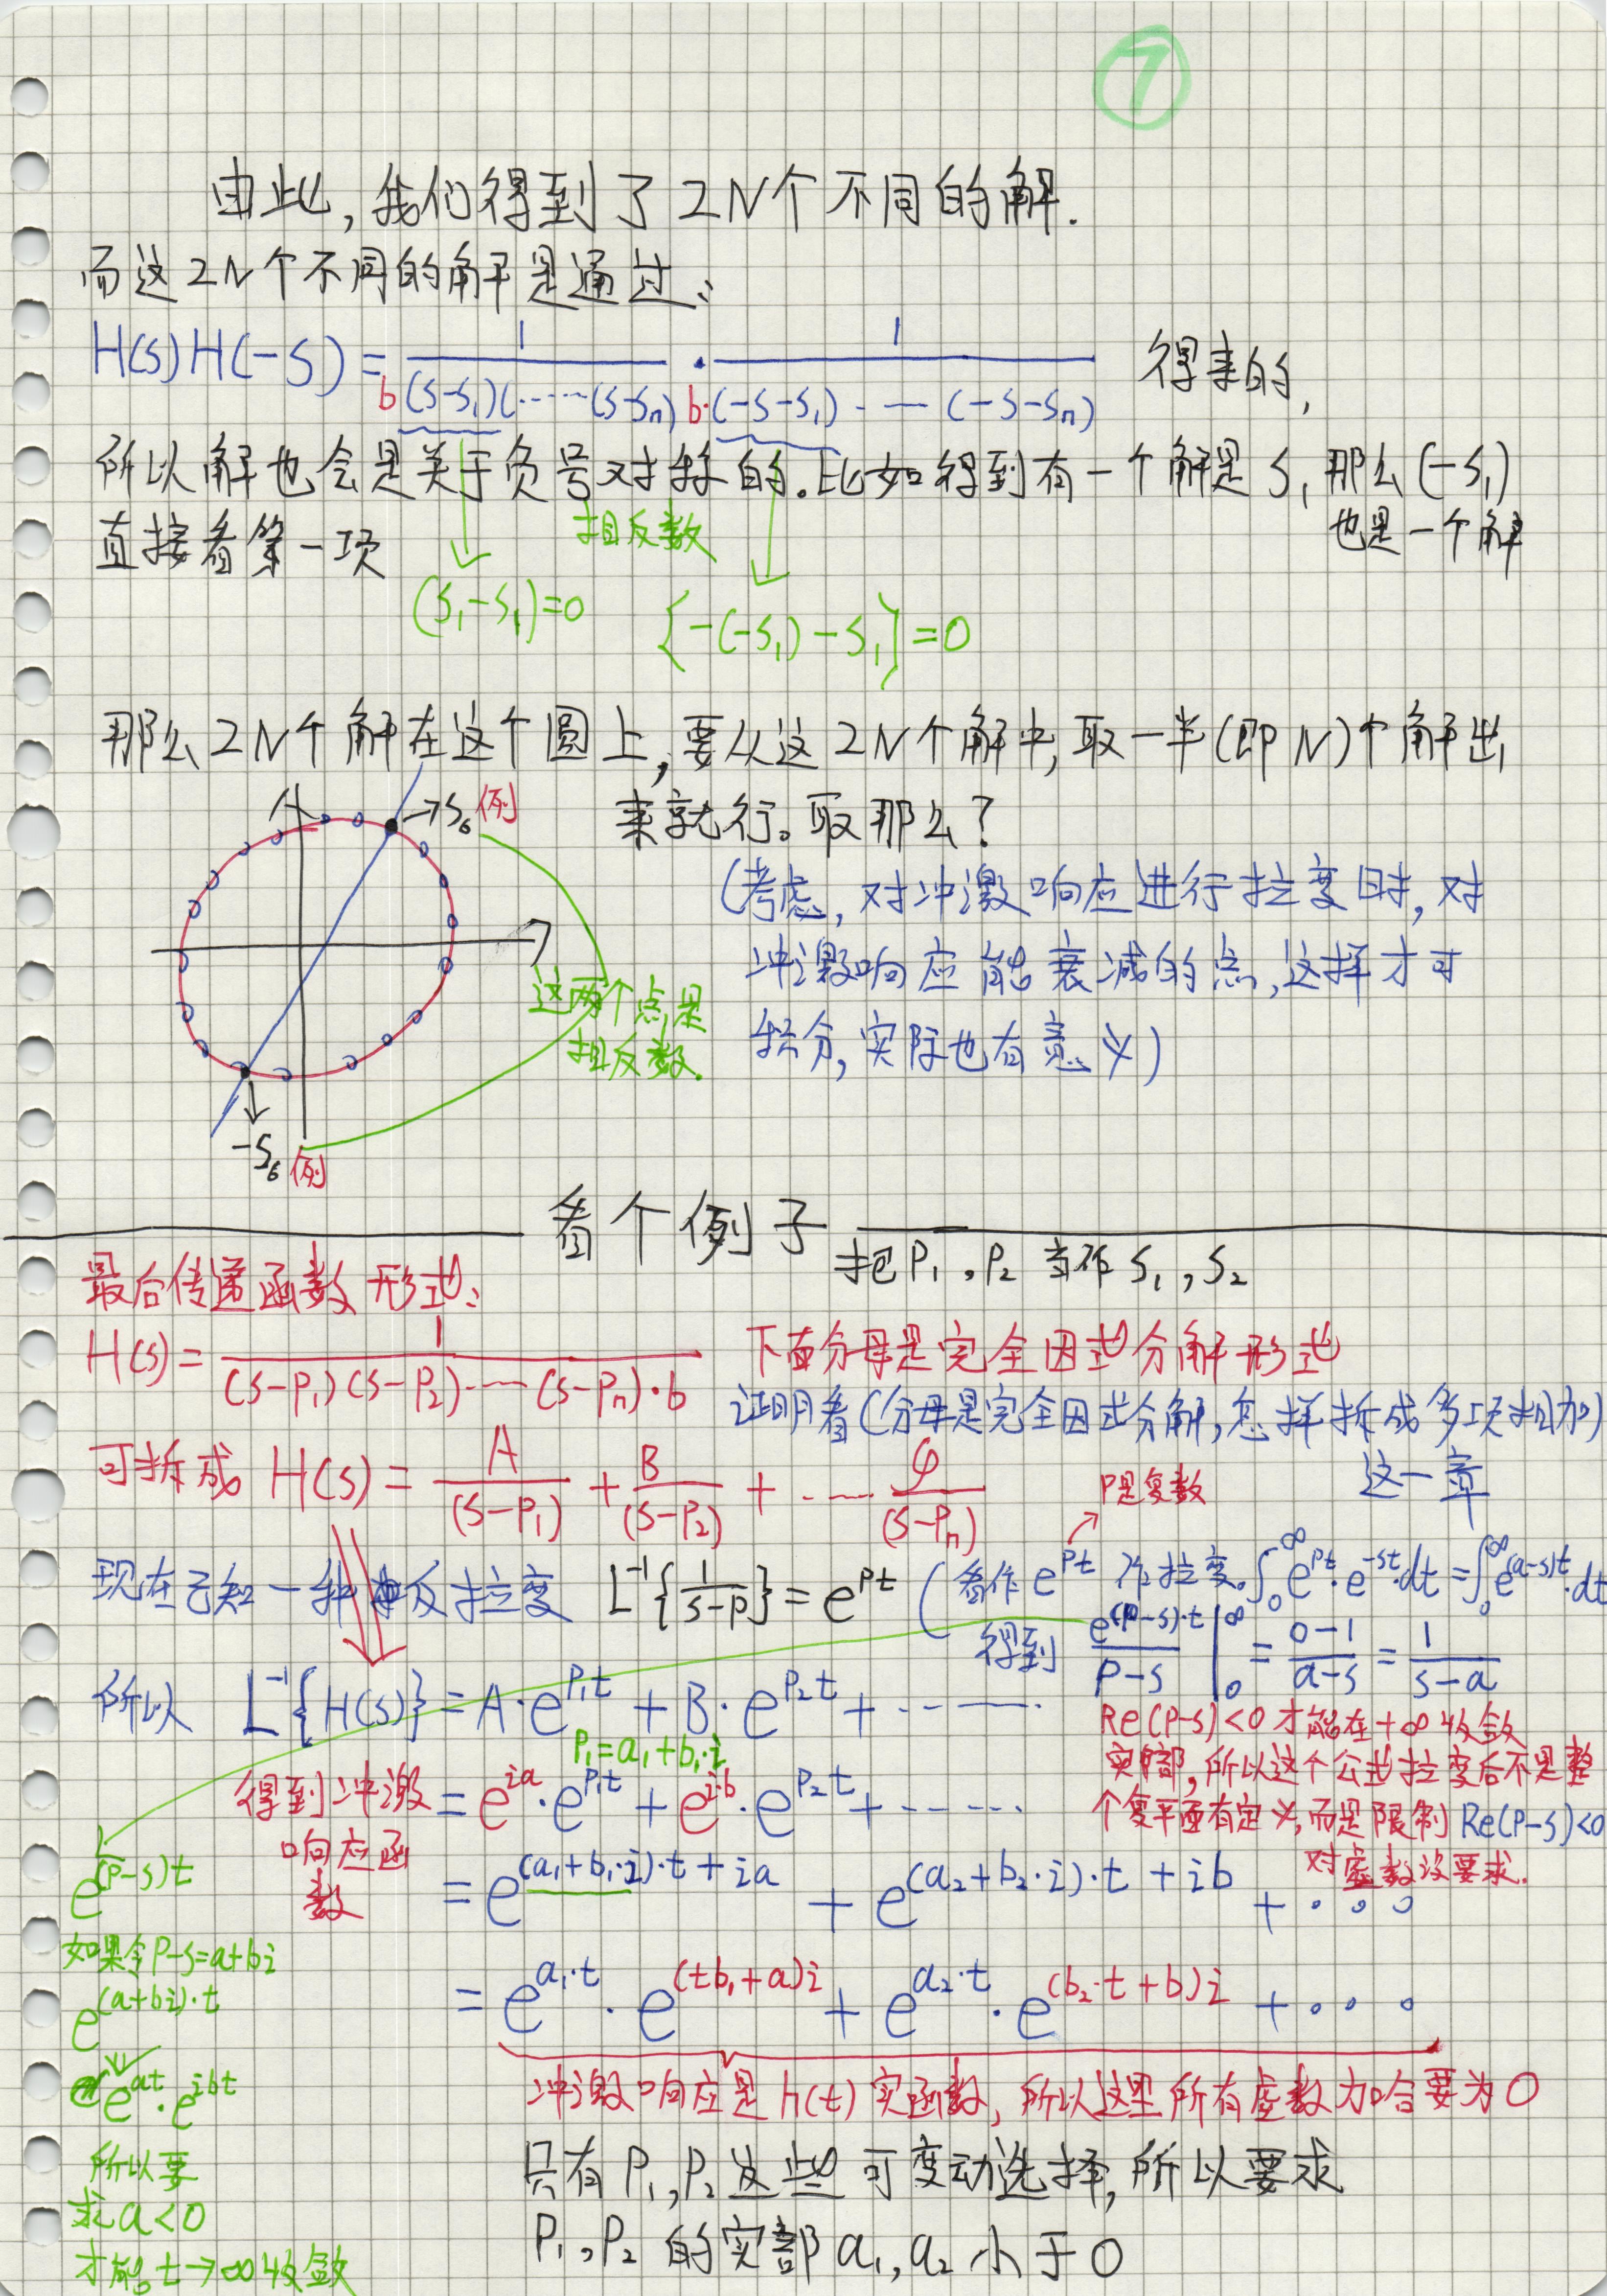 7
由此,我们得到了2N个不同的解.
而这2N个不同的解是通过:
H(s)H(-s) = 1/(b(s-s₁)(……(s-sₙ)) · 1/(b·(-s-s₁)-—(-s-sₙ)) 得来的,
所以解也会是关于负号对称的.比如得到有一个解是s₁那么(-s₁)
也是一个解
直接看第一项
相反数
(s₁-s₁)=0
{-(-s₁)-s₁}=0
那么2N个解在这个圆上,要从这2N个解中,取一半(即N)个解出
来就行。取那么?
→s₆例
(考虑,对冲激响应进行拉变时,对
冲激响应能衰减的点,这样才可
积分,实际也有意义)
这两个点是
相反数.
-s₆例
看个例子
把P₁,P₂当作s₁,s₂
最后传递函数形式:
H(s) = 1/((s-p₁)(s-p₂)-……(s-pₙ)·b)
下面分母是完全因式分解形式
证明看(分母是完全因式分解,怎样拆成多项相加)
这一章
可拆成 H(s) = A/(s-p₁) + B/(s-p₂) + …… φ/(s-pₙ)
P是复数
现在已知一种反拉变 L⁻¹{1/(s-p)} = e^(pt) (看作e^(pt)作拉变。∫₀^∞ e^(pt)·e^(-st)·dt = ∫₀^∞ e^((a-s)t)·dt
得到 e^((p-s)·t)/(p-s) |₀^∞ = (0-1)/(a-s) = 1/(s-a)
所以 L⁻¹{H(s)} = A·e^(p₁t) + B·e^(p₂t) + ……
Re(p-s)<0才能在+∞收敛
实部,所以这个公式拉变后不是整
个复平面有定义,而是限制Re(p-s)<0
对虚数没要求.
P₁=a₁+b₁·i
得到冲激
响应函
数
= e^(ia)·e^(p₁t) + e^(i·b)·e^(p₂t) + ……
= e^((a₁+b₁·i)·t+ia) + e^((a₂+b₂·i)·t+ib) + 。。。
= e^(a₁·t)·e^((tb₁+a)i) + e^(a₂·t)·e^((b₂·t+b)i) + 。。。
冲激响应是h(t)实函数,所以这里所有虚数加合要为0
只有P₁,P₂这些可变动选择,所以要求
P₁,P₂的实部a₁,a₂小于0
e^((p-s)t)
如果令P-s=a+bi
e^((a+bi)·t)
e^(at)·e^(ibt)
所以要
求a<0
才能t→∞收敛